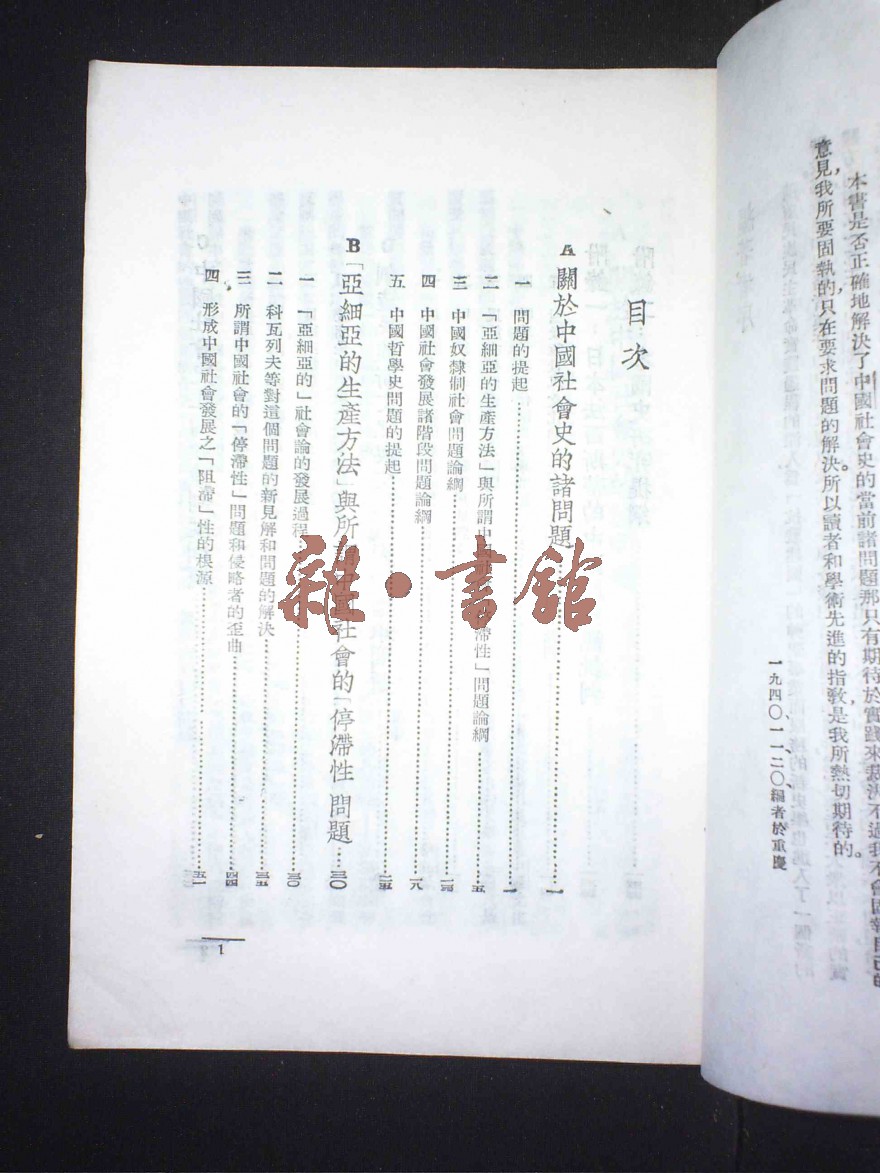 本書是否正確地解決了中國社會史的當前諸問題那只有期待於實踐來裁決不過我不會固執自己的
意見,我所要固執的只在要求問題的解決。所以讀者和學術先進的指敎是我所熱切期待的。
一九四〇、一一、二〇編者於重慶
目次
A 關於中國社會史的諸問題……一
一 問題的提起……一
二 「亞細亞的生產方法」與所謂中國 滯性」問題論綱……五
三 中國奴隸制社會問題論綱……一四
四 中國社會發展諸階段問題論綱……一八
五 中國哲學史問題的提起……二五
B 「亞細亞的生產方法」與所謂中國社會的「停滯性 問題……三〇
一 「亞細亞的」社會論的發展過程……三〇
二 科瓦列夫等對這個問題的新見解和問題的解決……三五
三 所謂中國社會的「停滯性」問題和侵略者的歪曲……四四
四 形成中國社會發展之「阻滯」性的根源……五一
1
雜·書館